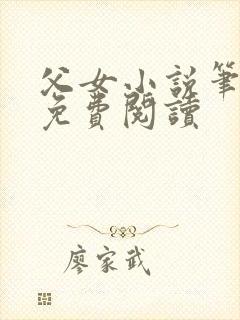 父女小说筆
免費閱讀
廖家武